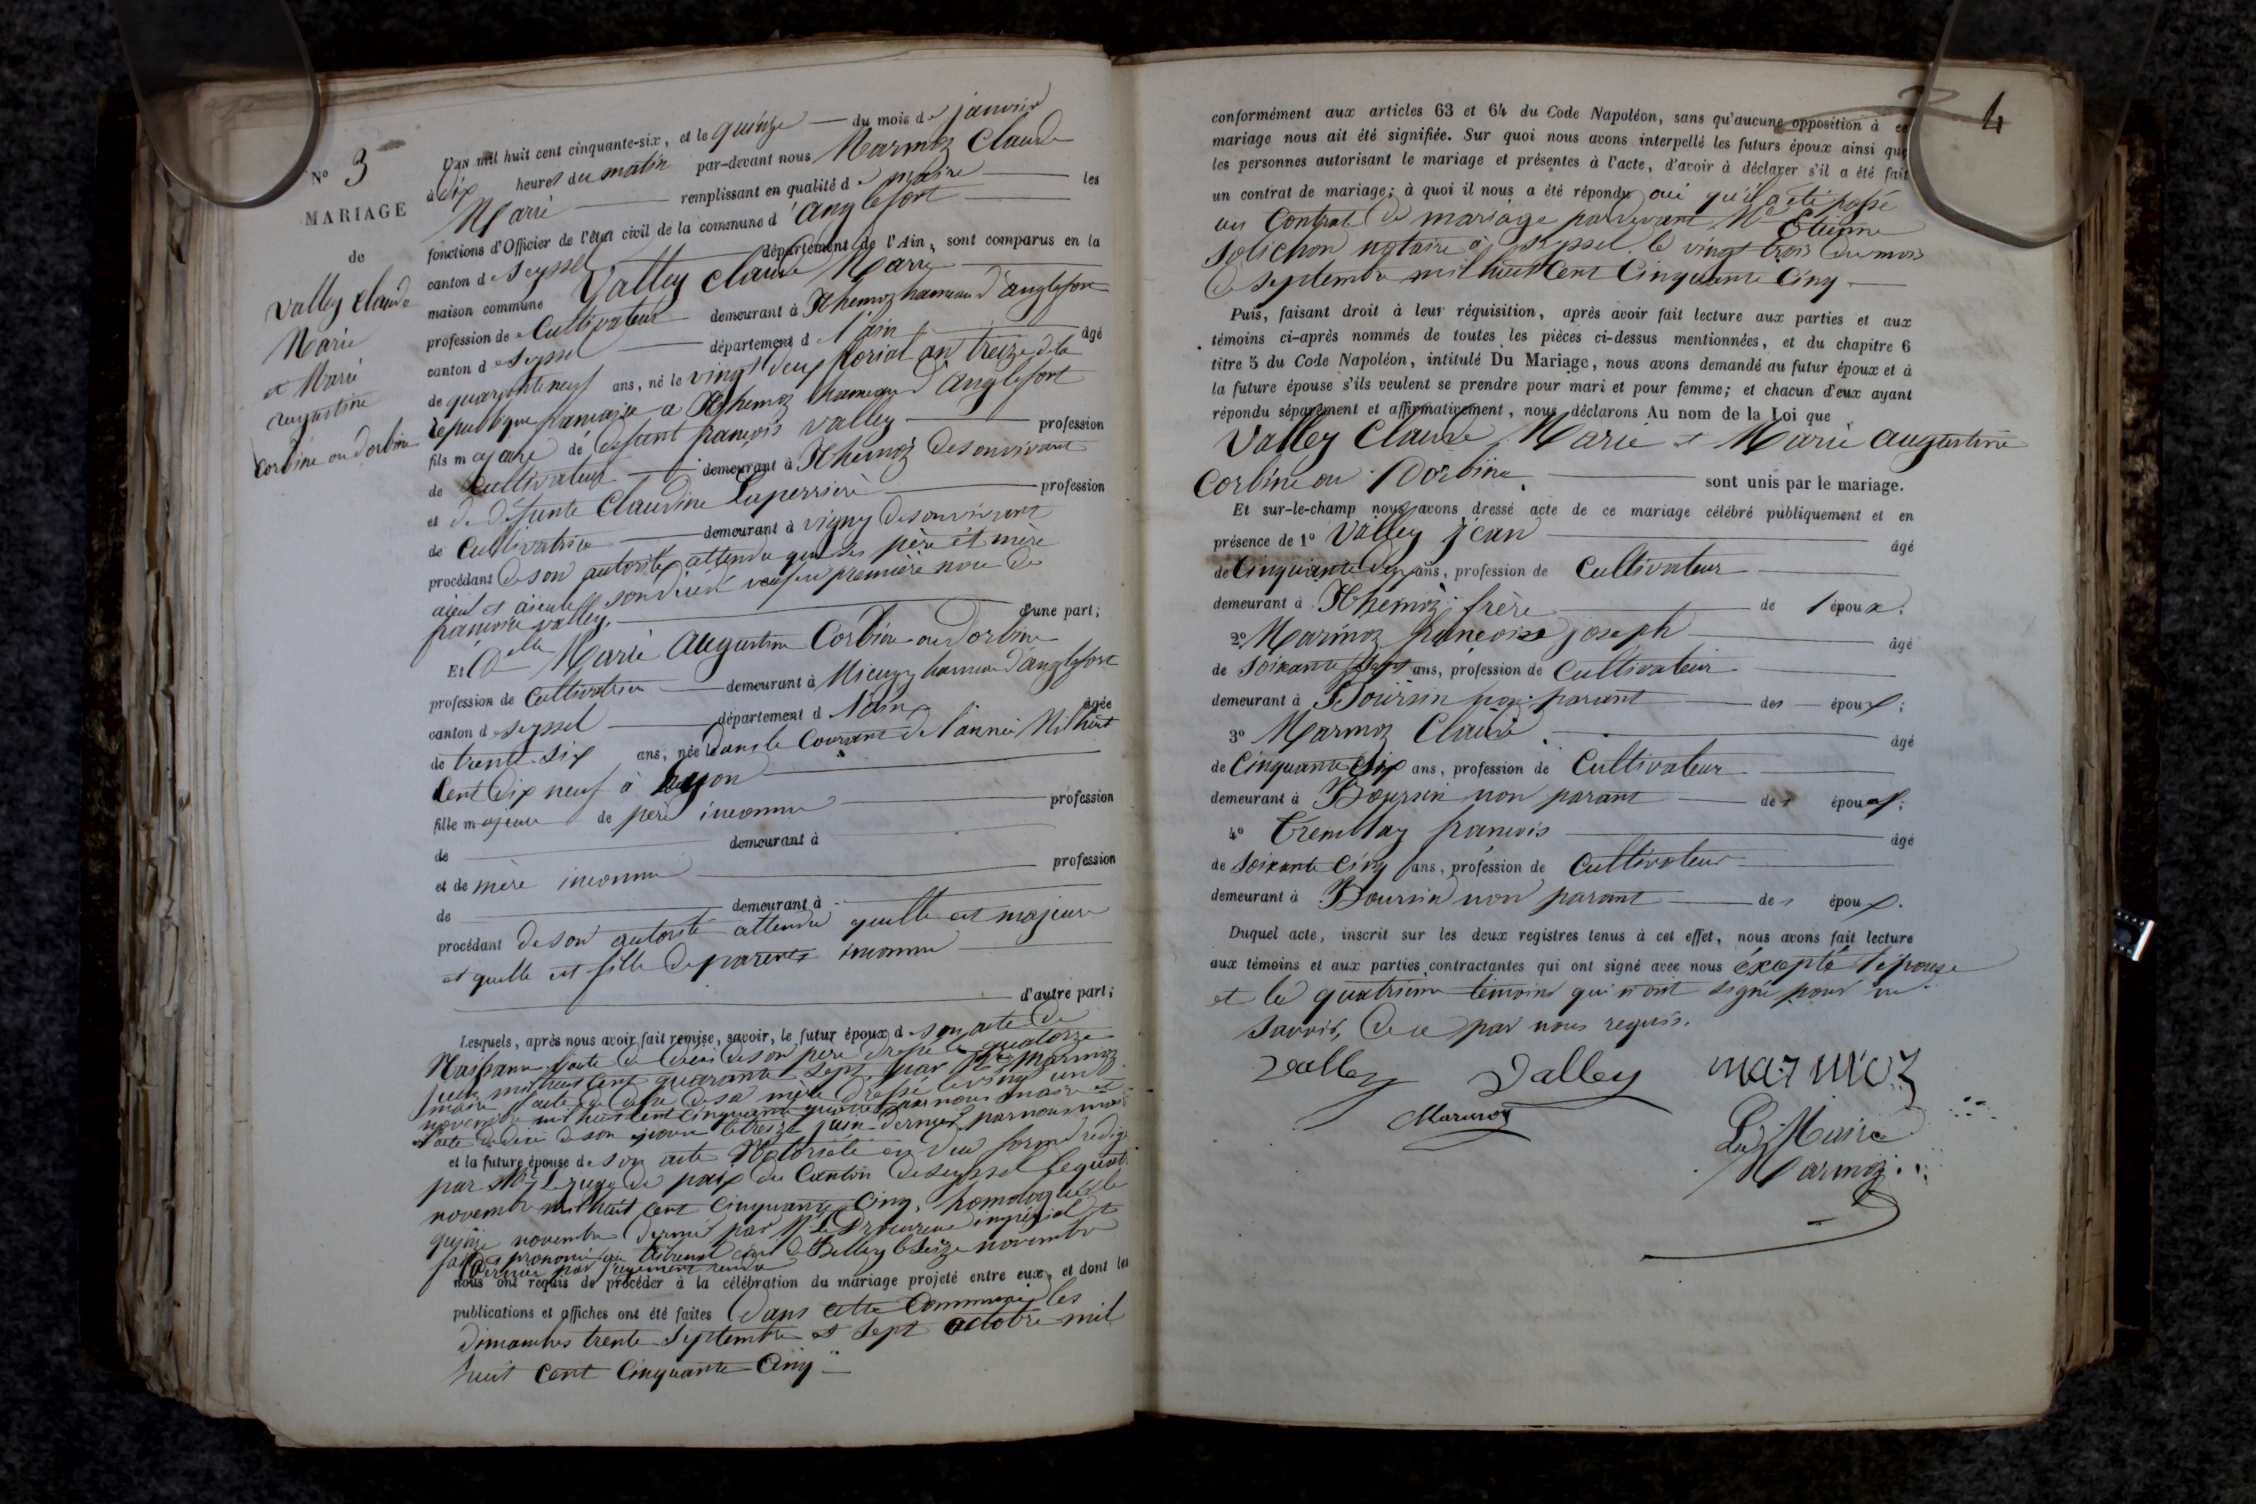 N° 3
MARIAGE
de
Valley Claude
Marie
et Marie
augustine
Corbine ou dorbine
L'AN mil huit cent cinquante-six, et le quinze du mois de janvier
à dix heures du matin par-devant nous Marmoz Claude
Marie remplissant en qualité de maire les
fonctions d'Officier de l'état civil de la commune d'anglefort
canton de Seyssel département de l'Ain, sont comparus en la
maison commune Valley Claude Marie
profession de Cultivateur demeurant à Thémoz hameau d'anglefort
canton de Seyssel département de l'ain âgé
de quarante neuf ans, né le vingt deux florial an treize de la
république française a Thémoz hameau d'anglefort
fils majeure de defunt françois Valley profession
de Cultivateur demeurant à Thémoz de son vivant
et de défunte Claudine Laperrière profession
de Cultivatrice demeurant à vigny de son vivant
procédant de son autorité attendu que ses père et mère
aïeul et aïeule sont décédé veuf en première noce de
françoise Valley. d'une part;
Et Delle Marie Augustine Corbine ou dorbine
profession de Cultivatrice demeurant à Mieugy hameau d'anglefort
canton de Seyssel département de l'Ain âgée
de trente six ans, née dans le Courant de l'année Mil huit
Cent dix neuf à Lyon
fille majeure de père inconnu profession
de demeurant à
et de mère inconnue profession
de demeurant à
procédant de son autorité attendu quelle est majeure
et quelle est fille de parents inconnu
d'autre part;
Lesquels, après nous avoir fait remise, savoir, le futur époux de son acte de
Naissance l'acte de décès de son père dressé le quatorze
juin mil huit cent quarante sept, par Mr Marmoz
maire l'acte de décès de sa mère dressé le vingt un
novembre mil huit cent cinquante quatre par nous maire et
l'acte de décès de son épouse le treize juin dernier par nous maire
et la future épouse de son acte Notoriété en due forme rédigé
par Mr le juge de paix du Canton de Seyssel le quatre
novembre mil huit cent cinquante cinq, homologuée le
quinze novembre dernier par Mr le Procureur impérial et
prononcé au tribunal civil de Belley le seize novembre
dernier par jugement rendu
nous ont requis de procéder à la célébration du mariage projeté entre eux, et dont les
publications et affiches ont été faites dans cette Commune les
dimanches trente Septembre et Sept octobre mil
huit cent Cinquante Cinq
4
conformément aux articles 63 et 64 du Code Napoléon, sans qu'aucune opposition à ce
mariage nous ait été signifiée. Sur quoi nous avons interpellé les futurs époux ainsi que
les personnes autorisant le mariage et présentes à l'acte, d'avoir à déclarer s'il a été fait
un contrat de mariage; à quoi il nous a été répondu oui qu'il a été passé
un Contrat de mariage pardevant Me Etienne
Jolichon notaire à Seyssel le vingt trois du mois
de Septembre mil huit Cent Cinquante Cinq
Puis, faisant droit à leur réquisition, après avoir fait lecture aux parties et aux
témoins ci-après nommés de toutes les pièces ci-dessus mentionnées, et du chapitre 6
titre 5 du Code Napoléon, intitulé Du Mariage, nous avons demandé au futur époux et à
la future épouse s'ils veulent se prendre pour mari et pour femme; et chacun d'eux ayant
répondu séparément et affirmativement, nous déclarons Au nom de la Loi que
Valley Claude Marie et Marie augustine
Corbine ou Dorbine sont unis par le mariage.
Et sur-le-champ nous avons dressé acte de ce mariage célébré publiquement et en
présence de 1° Valley jean âgé
de Cinquante deux ans, profession de Cultivateur
demeurant à Thémoz frère de l'époux.
2° Marmoz françoise joseph âgé
de Soixante Sept ans, profession de Cultivateur
demeurant à Boursin non parant des époux;
3° Marmoz Claude âgé
de Cinquante Six ans, profession de Cultivateur
demeurant à Boursin non parant des époux;
4° Tremblay françois âgé
de Soixante Cinq ans, profession de Cultivateur
demeurant à Boursin non parant des époux.
Duquel acte, inscrit sur les deux registres tenus à cet effet, nous avons fait lecture
aux témoins et aux parties contractantes qui ont signé avec nous éxcepté l'épouse
et le quatrième témoins qui n'ont signé pour ne
Savoir, de ce par nous requis.
Valley Valley marmoz
Marmoz
Le Maire
Marmoz